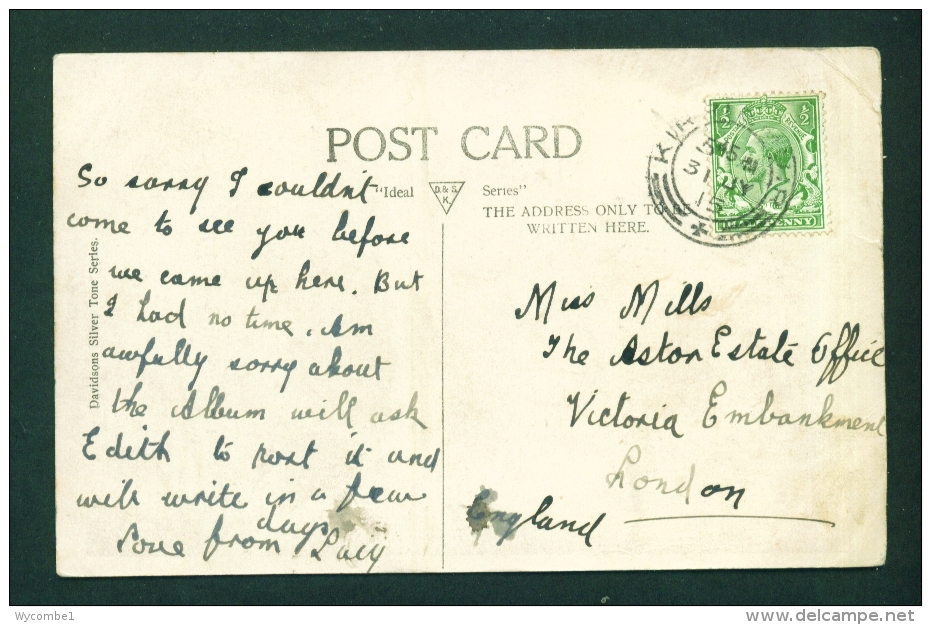 POST CARD
"Ideal D.&S. K. Series"
THE ADDRESS ONLY TO BE
WRITTEN HERE.
Davidsons Silver Tone Series.
So sorry I couldn't
come to see you before
we came up here. But
I had no time. Am
awfully sorry about
the Album will ask
Edith to post it and
will write in a few
days
Love from Lucy
Miss Mills
The Astor Estate Office
Victoria Embankment
London
England
½ ½
31 MY
15
Wycombe1
delcampe.net